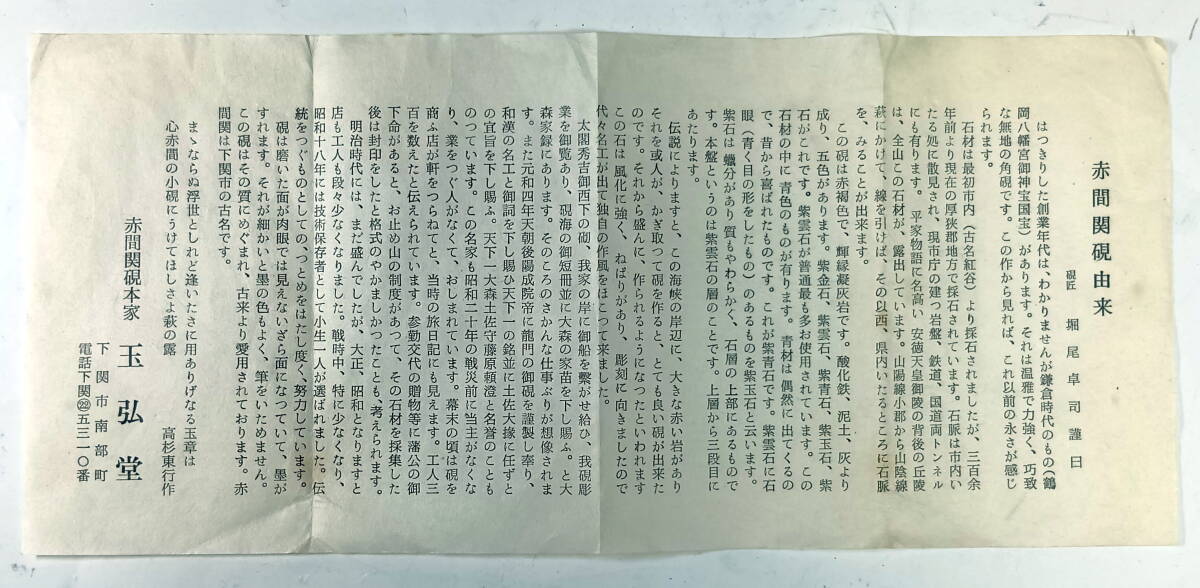 赤間関硯由来
硯匠　堀尾卓司謹白
はつきりした創業年代は、わかりませんが鎌倉時代のもの（鶴
岡八幡宮御神宝国宝）があります。それは温雅で力強く、巧致
な無地の角硯です。この作から見れば、これ以前の永さが感じ
られます。
石材は最初市内（古名紅谷）より採石されましたが、三百余
年前より現在の厚狭郡地方で採石されています。石脈は市内い
たる処に散見され、現市庁の建つ岩盤、鉄道、国道両トンネル
にも有ります。平家物語に名高い安徳天皇御陵の背後の丘陵
は、全山この石材が、露出しています。山陽線小郡から山陰線
萩にかけて、線を引けば、その以西、県内いたるところに石脈
を、みることが出来ます。
この硯は赤褐色で、輝緑凝灰岩です。酸化鉄、泥土、灰より
成り、五色があります。紫金石、紫雲石、紫青石、紫玉石、紫
石がこれです。紫雲石が普通最も多お使用されています。この
石材の中に青色のものが有ります。青材は偶然に出てくるの
で、昔から喜ばれたものです。これが紫青石です。紫雲石に石
眼（青く目の形をしたもの）のあるものを紫玉石と云います。
紫石は蠟分があり質もやわらかく、石層の上部にあるもので
す。本盤というのは紫雲石の層のことです。上層から三段目に
あたります。
伝説によりますと、この海峡の岸辺に、大きな赤い岩があり
それを或人が、かぎ取って硯を作ると、とても良い硯が出来た
のです。それから盛んに、作られるようになったといわれます
この石は風化に強く、ねばりがあり、彫刻に向きましたので
代々名工が出て独自の作風をほこつて来ました。
太閤秀吉御西下の砌、我家の岸に御船を繋がせ給ひ、我硯彫
業を御覧あり、硯海の御短冊並に大森の家苗を下し賜ふ。と大
森家録にあります。そのころのさかんな仕事ぶりが想像されま
す。また元和四年天朝後陽成院帝に龍門の御硯を謹製し奉り、
和漢の名工と御詞を下し賜ひ天下一の銘並に土佐大掾に任ずと
の宣旨を下し賜ふ。天下一大森土佐守藤原頼澄と名誉のことも
のつています。この名家も昭和二十年の戦災前に当主がなくな
り、業をつぐ人がなくて、おしまれています。幕末の頃は硯を
商ふ店が軒をつらねてと、当時の旅日記にも見えます。工人三
百を数えたと伝えられています。参勤交代の贈物等に藩公の御
下命があると、お止め山の制度があつて、その石材を採集した
後は封印をしたと格式のやかましかつたことも、考えられます。
明治時代には、まだ盛んでしたが、大正、昭和となりますと
店も工人も段々少なくなりました。戦時中、特に少なくなり、
昭和十八年には技術保存者として小生一人が選ばれました。伝
統をつぐものとしての、つとめをはたし度く、努力しています。
硯は磨いた面が肉眼では見えないざら面になつていて、墨が
すれます。それが細かいと墨の色もよく、筆をいためません。
この硯はその質にめぐまれ、古来より愛用されております。赤
間関は下関市の古名です。
まゝならぬ浮世としれど逢いたさに用ありげなる玉章は
心赤間の小硯にうけてほしさよ萩の露　高杉東行作
赤間関硯本家　玉弘堂
下関市南部町
電話下関㉒五三一〇番